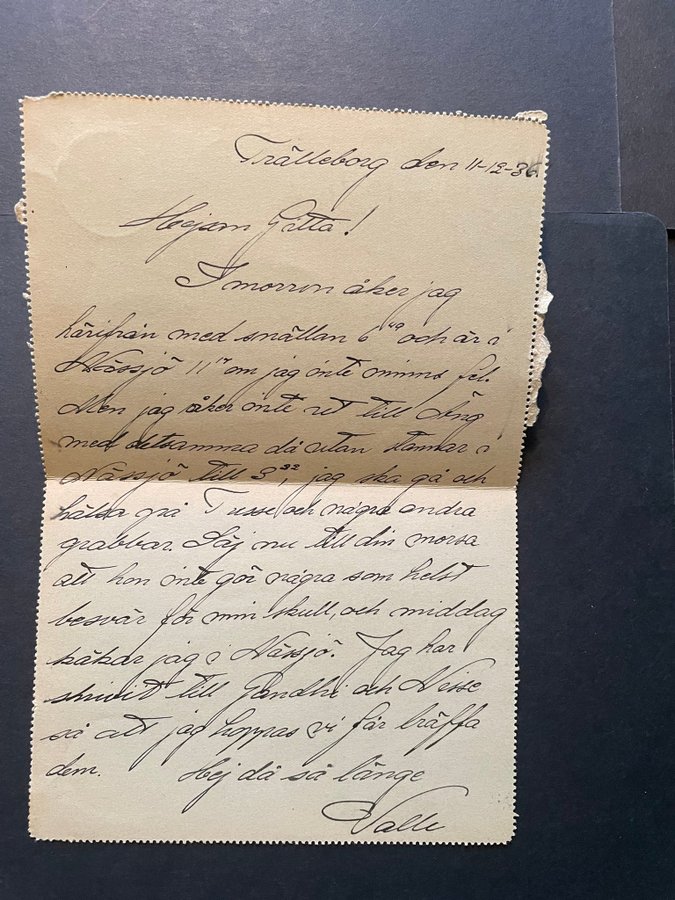 Trälleborg den 11-12-36
Hejsan Gitta!
I morron åker jag
härifrån med snällan 6 49 och är i
Nässjö 11 17 om jag inte minns fel.
Men jag åker inte ut till Äng
med detsamma då utan stannar i
Nässjö till 3 32, jag ska gå och
hälsa på Tusse och några andra
grabbar. Säj nu till din morsa
att hon inte gör några som helst
besvär för min skull, och middag
käkar jag i Nässjö. Jag har
skrivit till Gandhi och Nesse
så att jag hoppas vi får träffa
dem. Hej då så länge
Valle